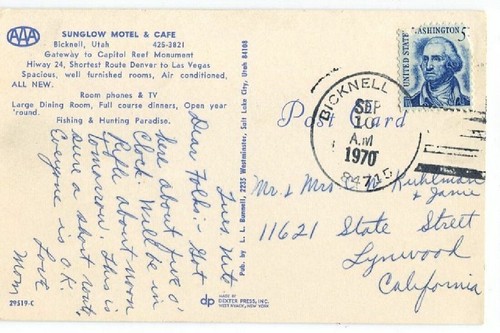 AAA
SUNGLOW MOTEL & CAFE
Bicknell, Utah 425-3821
Gateway to Capitol Reef Monument
Hiway 24, Shortest Route Denver to Las Vegas
Spacious, well furnished rooms, Air conditioned,
ALL NEW.
Room phones & TV
Large Dining Room, Full course dinners, Open year
'round.
Fishing & Hunting Paradise.
Tues. Nite
Dear Folks:- Got
here about five o'
clock. Will be in
about noon
tomorrow. This is
sure a short rout.
Everyone is o.k.
Love
Mom
29519-C
Pub. by L. L. Bunnell, 2235 Westminster, Salt Lake City, Utah 84108
dp
MADE BY
DEXTER PRESS, INC.
WEST NYACK, NEW YORK
Post Card
BICKNELL
SEP
10
A.M
1970
84715
WASHINGTON 5c
UNITED STATES
Mr. & Mrs. Kuhlman
& Janie
11621 State Street
Lynwood
California